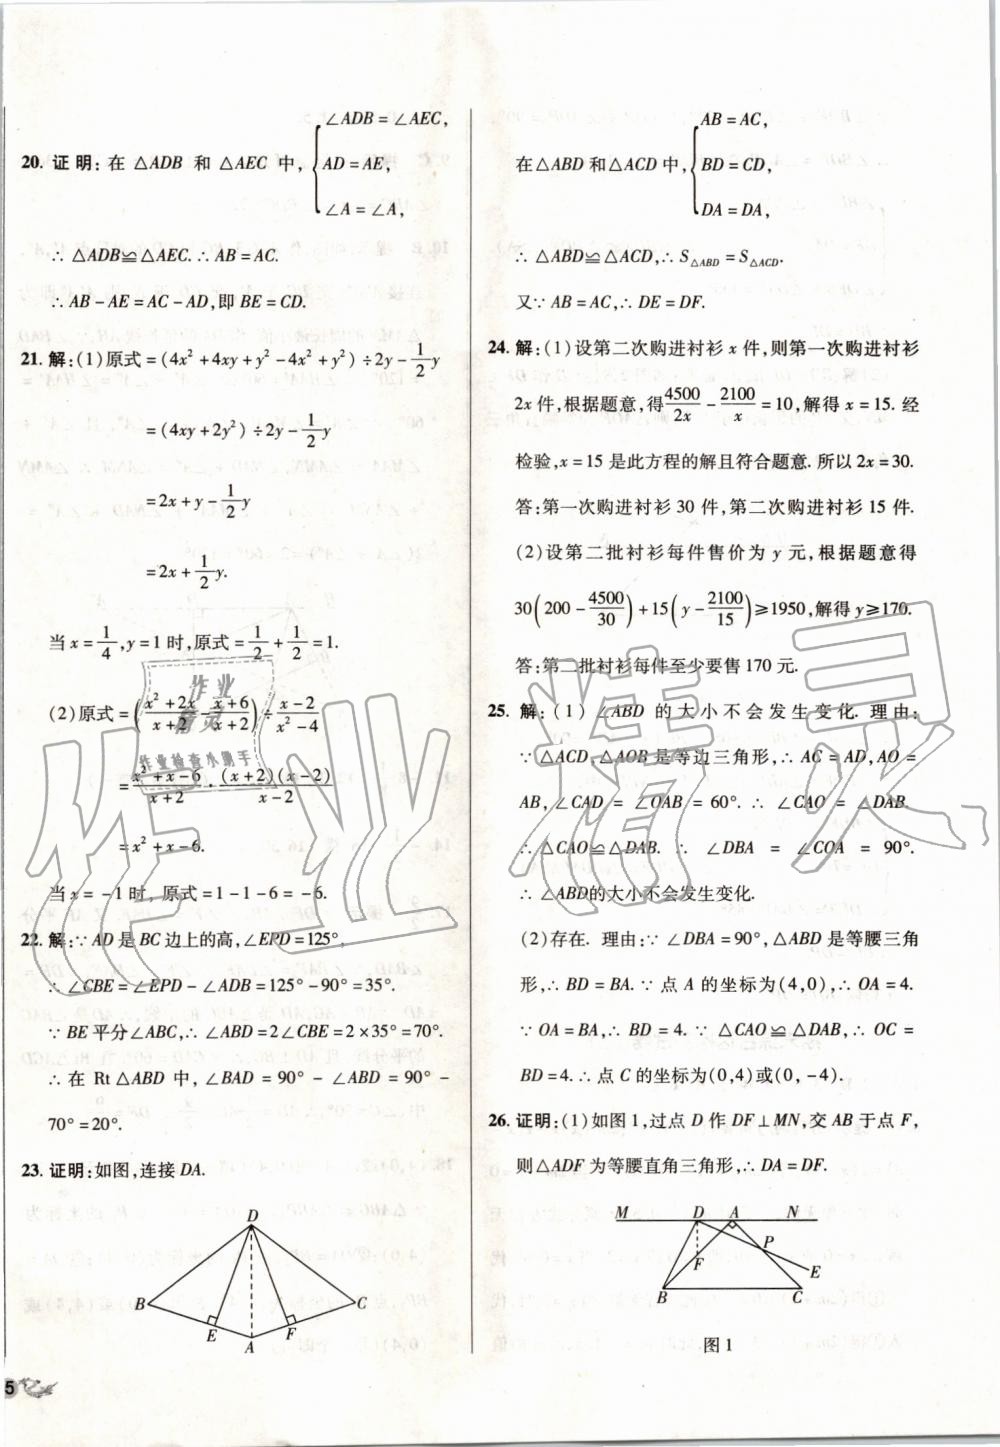 20. 证明:在 △ADB 和 △AEC 中,
∠ADB = ∠AEC,
AD = AE,
∠A = ∠A,
∴ △ADB≌△AEC. ∴ AB = AC.
∴ AB - AE = AC - AD,即 BE = CD.
21. 解:(1)原式 = (4x² + 4xy + y² - 4x² + y²) ÷ 2y - 1/2 y
= (4xy + 2y²) ÷ 2y - 1/2 y
= 2x + y - 1/2 y
= 2x + 1/2 y.
当 x = 1/4, y = 1 时,原式 = 1/2 + 1/2 = 1.
(2)原式 = ((x² + 2x)/(x + 2) - (x + 6)/(x + 2)) ÷ (x - 2)/(x² - 4)
= (x² + x - 6)/(x + 2) · (x + 2)(x - 2)/(x - 2)
= x² + x - 6.
当 x = -1 时, 原式 = 1 - 1 - 6 = -6.
22. 解:∵ AD 是 BC 边上的高,∠EPD = 125°,
∴ ∠CBE = ∠EPD - ∠ADB = 125° - 90° = 35°.
∵ BE 平分∠ABC,∴ ∠ABD = 2∠CBE = 2 × 35° = 70°.
∴ 在 Rt △ABD 中, ∠BAD = 90° - ∠ABD = 90° -
70° = 20°.
23. 证明:如图,连接 DA.
D
B
C
E
F
A
5
在△ABD 和△ACD 中,
AB = AC,
BD = CD,
DA = DA,
∴ △ABD≌△ACD,∴ S△ABD = S△ACD.
又∵ AB = AC,∴ DE = DF.
24. 解:(1)设第二次购进衬衫 x 件,则第一次购进衬衫
2x 件,根据题意,得 4500/2x - 2100/x = 10,解得 x = 15. 经
检验, x = 15 是此方程的解且符合题意. 所以 2x = 30.
答:第一次购进衬衫 30 件,第二次购进衬衫 15 件.
(2)设第二批衬衫每件售价为 y 元,根据题意得
30(200 - 4500/30) + 15(y - 2100/15) ≥ 1950,解得 y ≥ 170.
答:第二批衬衫每件至少要售 170 元.
25. 解:(1) ∠ABD 的大小不会发生变化. 理由:
∵ △ACD, △AOB 是等边三角形,∴ AC = AD, AO =
AB, ∠CAD = ∠OAB = 60°. ∴ ∠CAO = ∠DAB.
∴ △CAO≌△DAB. ∴ ∠DBA = ∠COA = 90°.
∴ ∠ABD的大小不会发生变化.
(2)存在. 理由:∵ ∠DBA = 90°,△ABD 是等腰三角
形,∴ BD = BA. ∵ 点 A 的坐标为(4,0),∴ OA = 4.
∵ OA = BA,∴ BD = 4. ∵ △CAO≌△DAB,∴ OC =
BD = 4. ∴ 点 C 的坐标为(0,4)或(0,-4).
26. 证明:(1)如图 1,过点 D 作 DF⊥MN,交 AB 于点 F,
则△ADF 为等腰直角三角形,∴ DA = DF.
M D A N
P
F
E
B C
图 1
作业精灵
作业
精灵
作业检查小助手